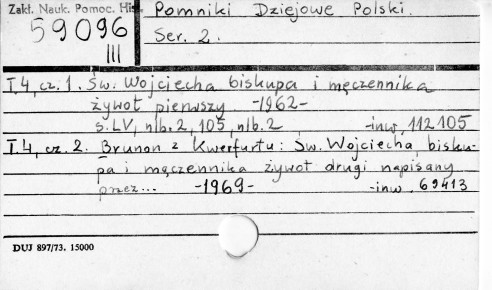 Zakł. Nauk. Pomoc. His
59096
III
Pomniki Dziejowe Polski.
Ser. 2.
T.4, cz. 1. Św. Wojciecha biskupa i męczennika
żywot pierwszy -1962-
s. LV, nlb. 2, 105, nlb. 2 -inw. 112105
T.4, cz. 2. Brunon z Kwerfurtu: Św. Wojciecha bisku-
pa i męczennika żywot drugi napisany
przez... -1969- -inw. 69413
DUJ 897/73. 15000